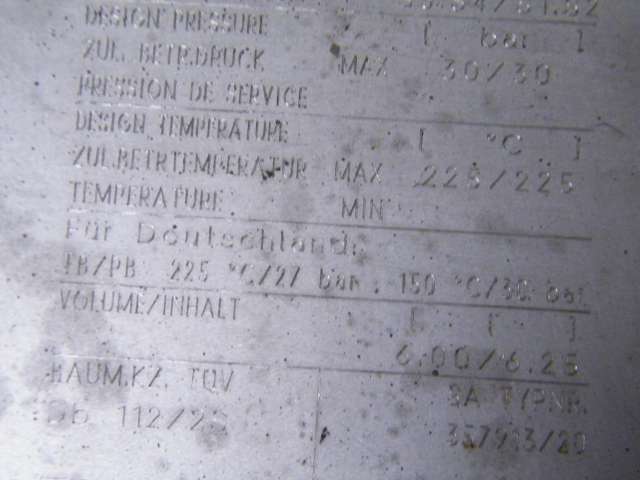 DESIGN PRESSURE [ bar ]
ZUL. BETR.DRUCK MAX 30/30
PRESSION DE SERVICE
DESIGN TEMPERATURE [ °C ]
ZUL.BETRTEMPERATUR MAX 225/225
TEMPERATURE MIN
Für Deutschland:
TB/PB 225 °C/27 bar , 150 °C/30 bar
VOLUME/INHALT [ l ]
6.00/6.25
BAUM.KZ. TÜV SA TYPNR.
112/2